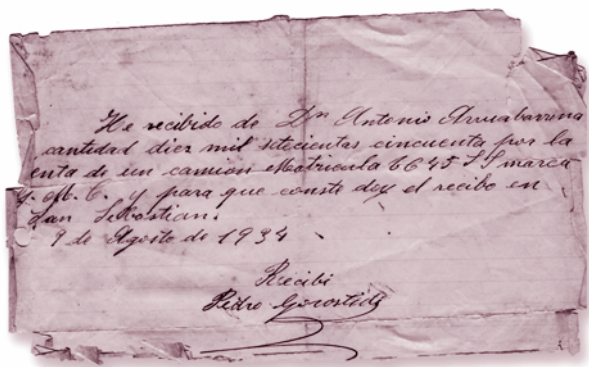 He recibido de Dn Antonio Arruabarrena
cantidad diez mil setecientas cincuenta por la
enta de un camion Matricula 6645 SS marca
G. M. C. y para que conste doy el recibo en
San Sebastian.
9 de Agosto de 1934
Recibi
Pedro Gorostidi